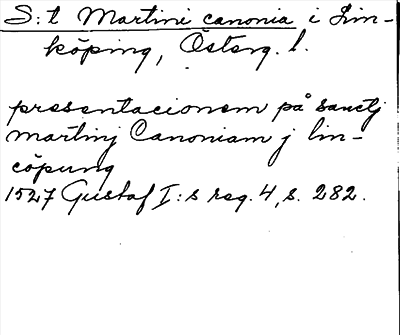 S:t Martini canonia i Lin-
köping, Österg. l.
presentacionem på sanctj
martinj Canoniam j lin-
cöpung
1527 Gustaf I:s reg. 4, s. 282.